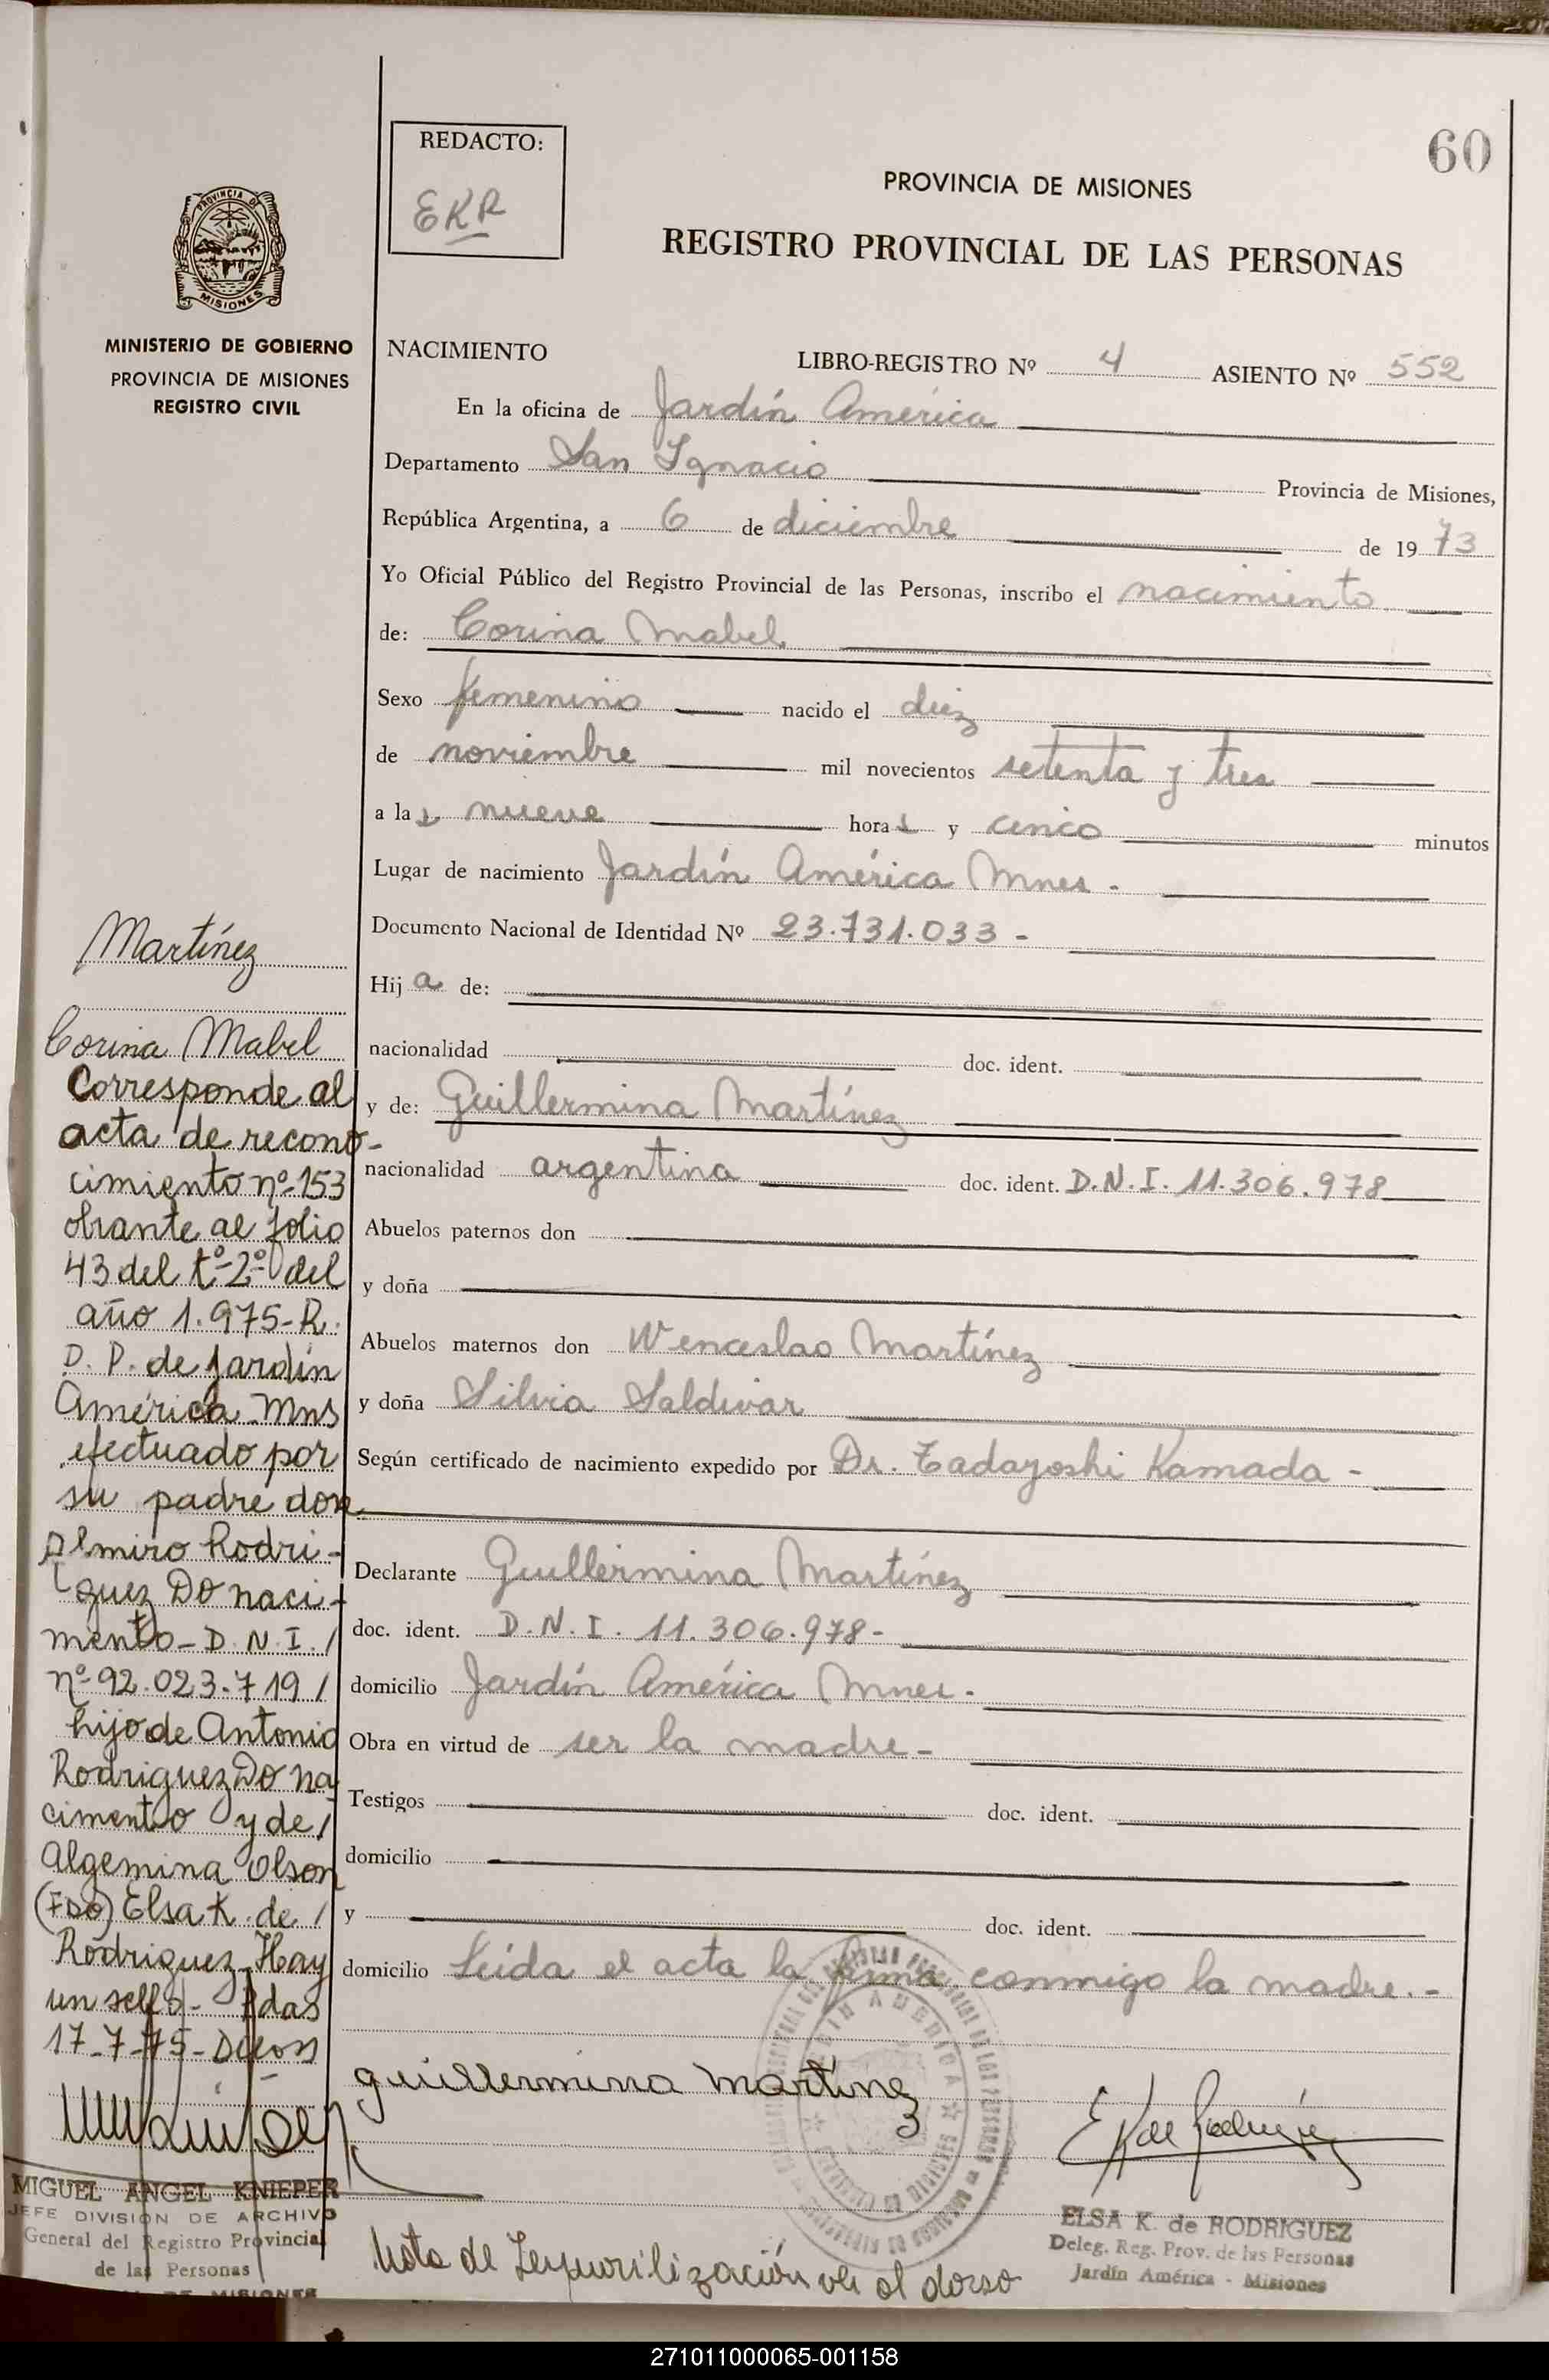 60
REDACTO:
EKR
PROVINCIA DE MISIONES
REGISTRO PROVINCIAL DE LAS PERSONAS
PROVINCIA DE
MISIONES
MINISTERIO DE GOBIERNO
PROVINCIA DE MISIONES
REGISTRO CIVIL
NACIMIENTO LIBRO-REGISTRO Nº 4 ASIENTO Nº 552
En la oficina de Jardín América
Departamento San Ignacio Provincia de Misiones,
República Argentina, a 6 de diciembre de 1973
Yo Oficial Público del Registro Provincial de las Personas, inscribo el nacimiento
de: Corina Mabel
Sexo femenino nacido el diez
de noviembre mil novecientos setenta y tres
a las nueve horas y cinco minutos
Lugar de nacimiento Jardín América Mnes.
Documento Nacional de Identidad Nº 23.731.033 -
Hija de:
nacionalidad doc. ident.
y de: Guillermina Martínez
nacionalidad argentina doc. ident. D.N.I. 11.306.978
Abuelos paternos don
y doña
Abuelos maternos don Wenceslao Martínez
y doña Silvia Saldivar
Según certificado de nacimiento expedido por Dr. Tadayoshi Kamada -
Declarante Guillermina Martínez
doc. ident. D.N.I. 11.306.978-
domicilio Jardín América Mnes.
Obra en virtud de ser la madre-
Testigos doc. ident.
domicilio
y doc. ident.
domicilio Leída el acta la firma conmigo la madre.-
guillermina martinez
E K de Rodriguez
ELSA K. de RODRIGUEZ
Deleg. Reg. Prov. de las Personas
Jardín América - Misiones
Nota de ver al dorso
Martínez
Corina Mabel
Corresponde al
acta de recono-
cimiento nº 153
obrante al folio
43 del tº 2º del
año 1.975-R.
D. P. de Jardín
América Mns
efectuado por
su padre don
Almiro Rodri-
guez DO naci-
mento - D.N.I. /
nº 92.023.719 /
hijo de Antonio
Rodriguez DO na
cimento y de /
Algemina Olson
(FDO) Elsa K. de /
Rodriguez Hay
un sello - Pdas
17-7-75-
MIGUEL ANGEL KNIEPER
JEFE DIVISION DE ARCHIVO
General del Registro Provincial
de las Personas
DE MISIONES
271011000065-001158